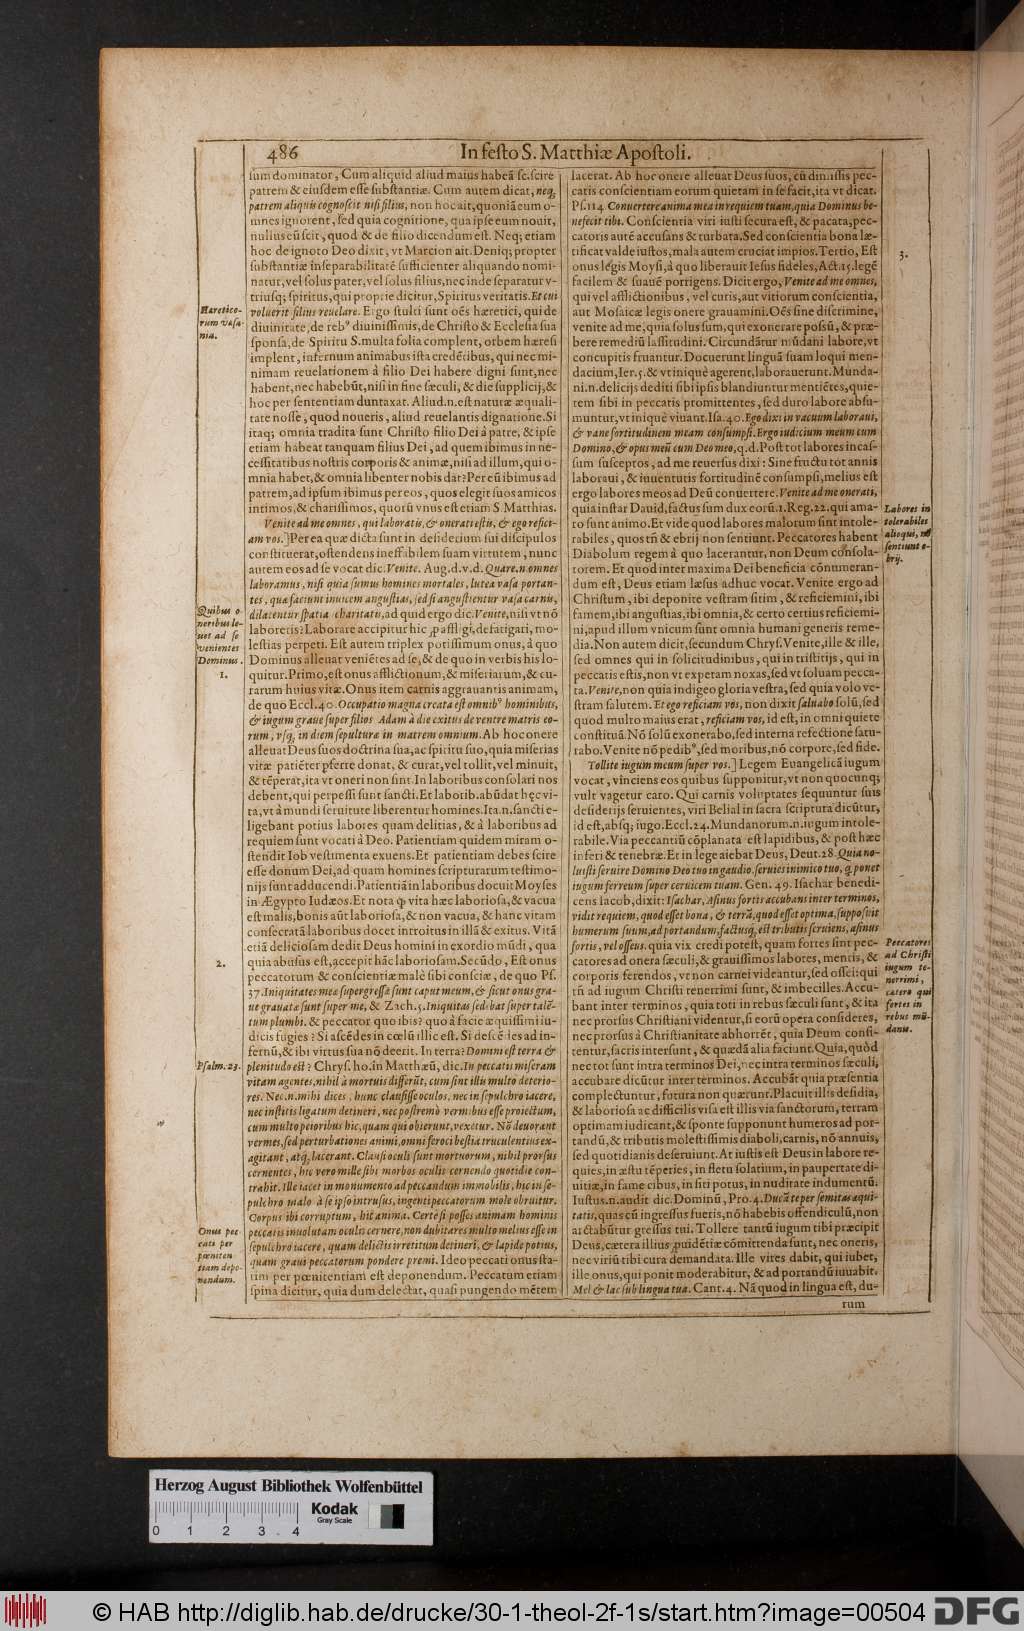 486 In festo S. Matthiæ Apostoli.
sum dominator, Cum aliquid aliud maius habeã sc. scire
patrem & eiusdem esse substantiæ. Cum autem dicat, neq;
patrem aliquis cognoscit nisi filius, non hoc ait, quoniã eum o-
mnes ignorent, sed quia cognitione, qua ipse eum nouit,
nullus eũ scit, quod & de filio dicendum est. Neq; etiam
hoc de ignoto Deo dixit, vt Marcion ait. Deniq; propter
substantiæ inseparabilitatẽ sufficienter aliquando nomi-
natur, vel solus pater, vel solus filius, nec inde separatur v-
triusq; spiritus, qui proprie dicitur, Spiritus veritatis. Et cui
voluerit filius reuelare. Ergo stulti sunt oẽs hæretici, qui de
diuinitate, de rebꝰ diuinissimis, de Christo & Ecclesia sua
sponsa, de Spiritu S. multa folia complent, orbem hæresi
implent, infernum animabus ista credẽtibus, qui nec mi-
nimam reuelationem à filio Dei habere digni sunt, nec
habent, nec habebũt, nisi in fine sæculi, & die supplicij, &
hoc per sententiam duntaxat. Aliud. n. est naturæ æquali-
tate nosse, quod noueris, aliud reuelantis dignatione. Si
itaq; omnia tradita sunt Christo filio Dei à patre, & ipse
etiam habeat tanquam filius Dei, ad quem ibimus in ne-
cessitatibus nostris corporis & animæ, nisi ad illum, qui o-
mnia habet, & omnia libenter nobis dat? Per eũ ibimus ad
patrem, ad ipsum ibimus per eos, quos elegit suos amicos
intimos, & charissimos, quorũ vnus est etiam S. Matthias.
Venite ad me omnes, qui laboratis, & onerati estis, & ego refici-
am vos.] Per ea quæ dicta sunt in desiderium sui discipulos
constituerat, ostendens ineffabilem suam virtutem, nunc
autem eos ad se vocat dic. Venite. Aug. d. v. d. Quare. n. omnes
laboramus, nisi quia sumus homines mortales, lutea vasa portan-
tes, quæ faciunt inuicem angustias, sed si angustientur vasa carnis,
dilacentur spatia charitatis, ad quid ergo dic. Venite, nisi vt nõ
laboretis? Laborare accipitur hic, pass. l. gi, defatigari, mo-
lestias perpeti. Est autem triplex potissimum onus, à quo
Dominus alleuat veniẽtes ad se, & de quo in verbis his lo-
quitur. Primo, est onus afflictionum, & miseriarum, & cu-
rarum huius vitæ. Onus item carnis aggrauantis animam,
de quo Eccl. 40. Occupatio magna creata est omnibꝰ hominibus,
& iugum graue super filios Adam à die exitus de ventre matris eo-
rum, vsq; in diem sepulturæ in matrem omnium. Ab hoc onere
alleuat Deus suos doctrina sua, ac spiritu suo, quia miserias
vitæ patiẽter pferre donat, & curat, vel tollit, vel minuit,
& tẽperat, ita vt oneri non sint. In laboribus consolari nos
debent, qui perpessi sunt sancti. Et laborib. abũdat hęc vi-
ta, vt à mundi seruitute liberentur homines. Ita. n. sancti e-
ligebant potius labores quam delitias, & à laboribus ad
requiem sunt vocati à Deo. Patientiam quidem miram o-
stendit Iob vestimenta exuens. Et patientiam debes scire
esse donum Dei, ad quam homines scripturarum testimo-
nijs sunt adducendi. Patientiã in laboribus docuit Moyses
in Ægypto Iudæos. Et nota ꝙ vita hæc laboriosa, & vacua
est malis, bonis aũt laboriosa, & non vacua, & hanc vitam
consecratã laboribus docet introitus in illã & exitus. Vitã
etiã deliciosam dedit Deus homini in exordio mũdi, qua
quia abusus est, accepit hãc laboriosam. Secũdo, Est onus
peccatorum & conscientiæ malè sibi consciæ, de quo Ps.
37. Iniquitates meæ supergressæ sunt caput meum, & sicut onus gra-
ue grauatæ sunt super me, & Zach. 5. Iniquitas sedebat super talẽ-
tum plumbi. & peccator quo ibis? quo à facie æquissimi iu-
dicis fugies? Si ascẽdes in cœlũ illic est. Si descẽdes ad in-
fernũ, & ibi virtus sua nõ deerit. In terra? Domini est terra &
plenitudo est? Chrys. ho. in Matthæũ, dic. In peccatis miseram
vitam agentes, nihil à mortuis differũt, cum sint illis multo deterio-
res. Nec. n. mihi dices, hunc clausisse oculos, nec in sepulchro iacere,
nec institis ligatum detineri, nec postremò vermibus esse proiectum,
cum multo peioribus hic, quam qui obierunt, vexetur. Nõ deuorant
vermes, sed perturbationes animi, omni feroci bestia truculentius ex-
agitant, atq; lacerant. Clausi oculi sunt mortuorum, nihil prorsus
cernentes, hic vero mille sibi morbos oculis cernendo quotidie con-
trahit. Ille iacet in monumento ad peccandum immobilis, hic in se-
pulchro malo à se ipso intrusus, ingenti peccatorum mole obruitur.
Corpus ibi corruptum, hic anima. Certe si posses animam hominis
peccatis inuolutam oculis cernere, non dubitares multo melius esse in
sepulchro iacere, quam delictis irretitum detineri, & lapide potius,
quam graui peccatorum pondere premi. Ideo peccati onus sta-
tim per pœnitentiam est deponendum. Peccatum etiam
spina dicitur, quia dum delectat, quasi pungendo mẽtem
Hæretico-
rum vesa-
nia.
Quibus o-
neribus le-
uet ad se
venientes
Dominus.
1.
2.
Psalm. 23.
Onus pec-
cati per
pœniten-
tiam depo-
nendum.
lacerat. Ab hoc onere alleuat Deus suos, cũ dimissis pec-
catis conscientiam eorum quietam in se facit, ita vt dicat.
Ps. 114. Conuertere anima mea in requiem tuam, quia Dominus be-
nefecit tibi. Conscientia viri iusti secura est, & pacata, pec-
catoris autẽ accusans & turbata. Sed conscientia bona læ-
tificat valde iustos, mala autem cruciat impios. Tertio, Est
onus legis Moysi, à quo liberauit Iesus fideles, Act. 15. legẽ
facilem & suauẽ porrigens. Dicit ergo, Venite ad me omnes,
qui vel afflictionibus, vel curis, aut vitiorum conscientia,
aut Mosaicæ legis onere grauamini. Oẽs sine discrimine,
venite ad me, quia solus sum, qui exonerare possũ, & præ-
bere remediũ lassitudini. Circundãtur mũdani labore, vt
concupitis fruantur. Docuerunt linguã suam loqui men-
dacium, Ier. 5. & vt iniquè agerent, laborauerunt. Munda-
ni. n. delicijs dediti sibi ipsis blandiuntur mentiẽtes, quie-
tem sibi in peccatis promittentes, sed duro labore absu-
muntur, vt iniquè viuant. Isa. 40. Ego dixi in vacuum laboraui,
& vane fortitudinem meam consumpsi. Ergo iudicium meum cum
Domino, & opus meũ cum Deo meo, q. d. Post tot labores incas-
sum susceptos, ad me reuersus dixi: Sine fructu tot annis
laboraui, & iuuentutis fortitudinẽ consumpsi, melius est
ergo labores meos ad Deũ conuertere. Venite ad me onerati,
quia instar Dauid, factus sum dux eorũ. 1. Reg. 22. qui ama-
ro sunt animo. Et vide quod labores malorum sint intole-
rabiles, quos tñ & ebrij non sentiunt. Peccatores habent
Diabolum regem à quo lacerantur, non Deum consola-
torem. Et quod inter maxima Dei beneficia cõnumeran-
dum est, Deus etiam læsus adhuc vocat. Venite ergo ad
Christum, ibi deponite vestram sitim, & reficiemini, ibi
famem, ibi angustias, ibi omnia, & certo certius reficiemi-
ni, apud illum vnicum sunt omnia humani generis reme-
dia. Non autem dicit, secundum Chrys. Venite, ille & ille,
sed omnes qui in solicitudinibus, qui in tristitijs, qui in
peccatis estis, non vt expetam noxas, sed vt soluam pecca-
ta. Venite, non quia indigeo gloria vestra, sed quia volo ve-
stram salutem. Et ego reficiam vos, non dixit saluabo solũ, sed
quod multo maius erat, reficiam vos, id est, in omni quiete
constituã. Nõ solũ exonerabo, sed interna refectione satu-
rabo. Venite nõ pedibꝰ, sed moribus, nõ corpore, sed fide.
Tollite iugum meum super vos.] Legem Euangelicã iugum
vocat, vinciens eos quibus supponitur, vt non quocunq;
vult vagetur caro. Qui carnis voluptates sequuntur suis
desiderijs seruientes, viri Belial in sacra scriptura dicũtur,
id est, absq; iugo. Eccl. 24. Mundanorum. n. iugum intole-
rabile. Via peccantiũ cõplanata est lapidibus, & post hæc
inferi & tenebræ. Et in lege aiebat Deus, Deut. 28. Quia no-
luisti seruire Domino Deo tuo in gaudio, seruies inimico tuo, q. ponet
iugum ferreum super ceruicem tuam. Gen. 49. Isachar benedi-
cens Iacob, dixit: Isachar, Asinus fortis accubans inter terminos,
vidit requiem, quod esset bona, & terrã, quod esset optima, supposuit
humerum suum, ad portandum, factusq; est tributis seruiens, asinus
fortis, vel osseus. quia vix credi potest, quam fortes sint pec-
catores ad onera sæculi, & grauissimos labores, mentis, &
corporis ferendos, vt non carnei videantur, sed ossei: qui
tñ ad iugum Christi tenerrimi sunt, & imbecilles. Accu-
bant inter terminos, quia toti in rebus sæculi sunt, & ita
nec prorsus Christiani videntur, si eorũ opera consideres,
nec prorsus à Christianitate abhorrẽt, quia Deum confi-
tentur, sacris intersunt, & quædã alia faciunt. Quia, quòd
nec tot sunt intra terminos Dei, nec intra terminos sæculi,
accubare dicũtur inter terminos. Accubãt quia præsentia
complectuntur, futura non quærunt. Placuit illis desidia,
& laboriosa ac difficilis visa est illis via sanctorum, terram
optimam iudicant, & sponte supponunt humeros ad por-
tandũ, & tributis molestissimis diaboli, carnis, nõ annuis,
sed quotidianis deseruiunt. At iustis est Deus in labore re-
quies, in æstu tẽperies, in fletu solatium, in paupertate di-
uitiæ, in fame cibus, in siti potus, in nuditate indumentũ.
Iustus. n. audit dic. Dominũ, Pro. 4. Ducã te per semitas æqui-
tatis, quas cũ ingressus fueris, nõ habebis offendiculũ, non
arctabũtur gressus tui. Tollere tantũ iugum tibi præcipit
Deus, cætera illius ꝓuidẽtiæ cõmittenda sunt, nec oneris,
nec viriũ tibi cura demandata. Ille vires dabit, qui iubet,
ille onus, qui ponit moderabitur, & ad portandũ iuuabit.
Mel & lac sub lingua tua. Cant. 4. Nã quod in lingua est, du-
rum
3.
Labores in
tolerabiles
alioqui, nõ
sentiunt e-
brij.
Peccatores
ad Christi
iugum te-
nerrimi,
cætero qui
fortes in
rebus mũ-
danis.
Herzog August Bibliothek Wolfenbüttel
0 1 2 3 4
Kodak
Gray Scale
© HAB http://diglib.hab.de/drucke/30-1-theol-2f-1s/start.htm?image=00504
DFG